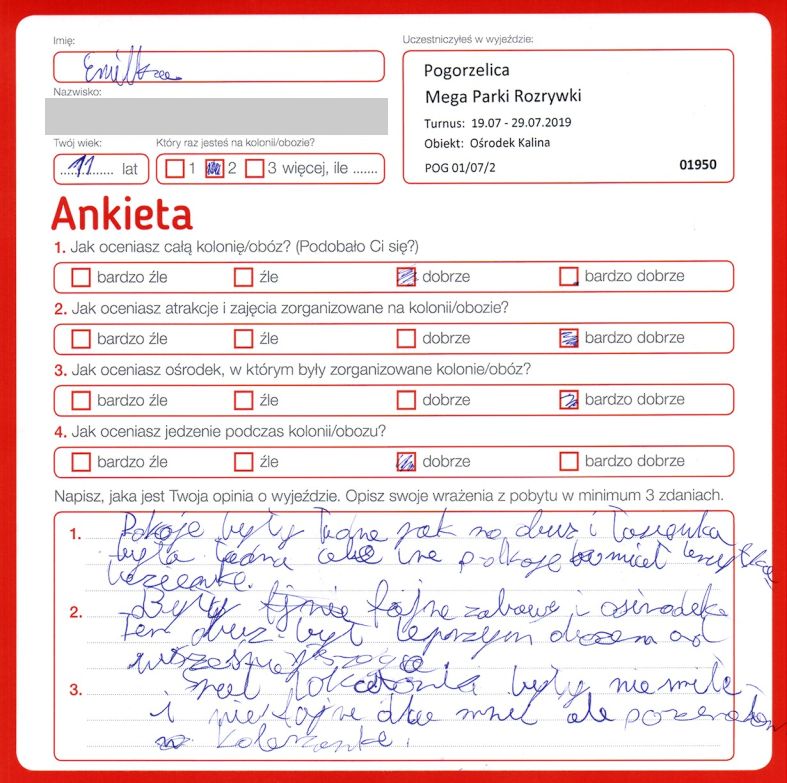 Imię:
Emilka
Nazwisko:
Twój wiek:
11 lat
Który raz jesteś na kolonii/obozie?
1 2 3 więcej, ile .......
Uczestniczyłeś w wyjeździe:
Pogorzelica
Mega Parki Rozrywki
Turnus: 19.07 - 29.07.2019
Obiekt: Ośrodek Kalina
POG 01/07/2 01950
Ankieta
1. Jak oceniasz całą kolonię/obóz? (Podobało Ci się?)
bardzo źle źle dobrze bardzo dobrze
2. Jak oceniasz atrakcje i zajęcia zorganizowane na kolonii/obozie?
bardzo źle źle dobrze bardzo dobrze
3. Jak oceniasz ośrodek, w którym były zorganizowane kolonie/obóz?
bardzo źle źle dobrze bardzo dobrze
4. Jak oceniasz jedzenie podczas kolonii/obozu?
bardzo źle źle dobrze bardzo dobrze
Napisz, jaka jest Twoja opinia o wyjeździe. Opisz swoje wrażenia z pobytu w minimum 3 zdaniach.
1. Pokoje były ładne jak na obuz i łazienka
była ładna ale
2. Były fajne zabawy i ośrodek
Ten obuz był leprzym obozem od
3. były nie miłe
i nie fajne dla mnie ale poznałam
koleżankę.